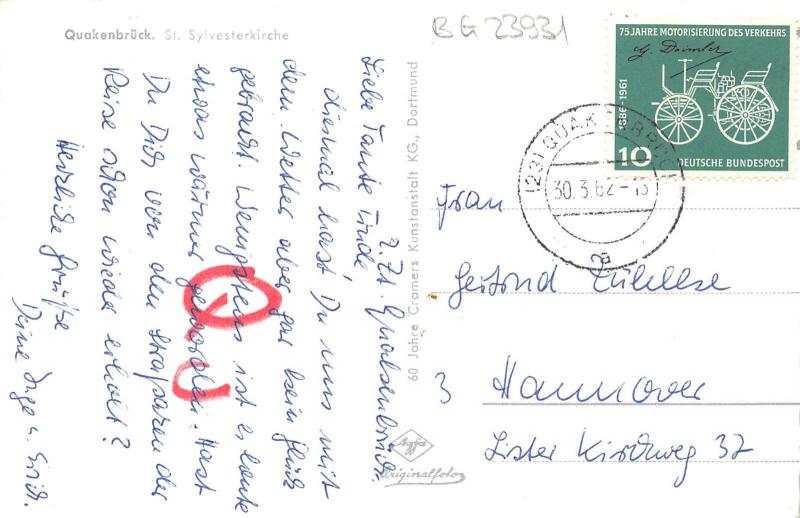 Quakenbrück. St. Sylvesterkirche
BG 23931
75 JAHRE MOTORISIERUNG DES VERKEHRS
G. Daimler
1886-1961
10 DEUTSCHE BUNDESPOST
(23) QUAKENBRÜCK
30.3.62-13
a
z. Zt. Quakenbrück.
Liebe Tante Trude
diesmal hast Du uns mit
dem Wetter aber gar kein Glück
gebracht. Wenigstens ist es heute
etwas wärmer geworden. Hast
Du Dich von den Strapazen der
Reise schon wieder erholt?
Herzliche Grüße
Deine Inge u.
60 Jahre Cramers Kunstanstalt KG., Dortmund
Agfa
Originalfoto
Frau
3 Hannover
Lister Kirchweg 37